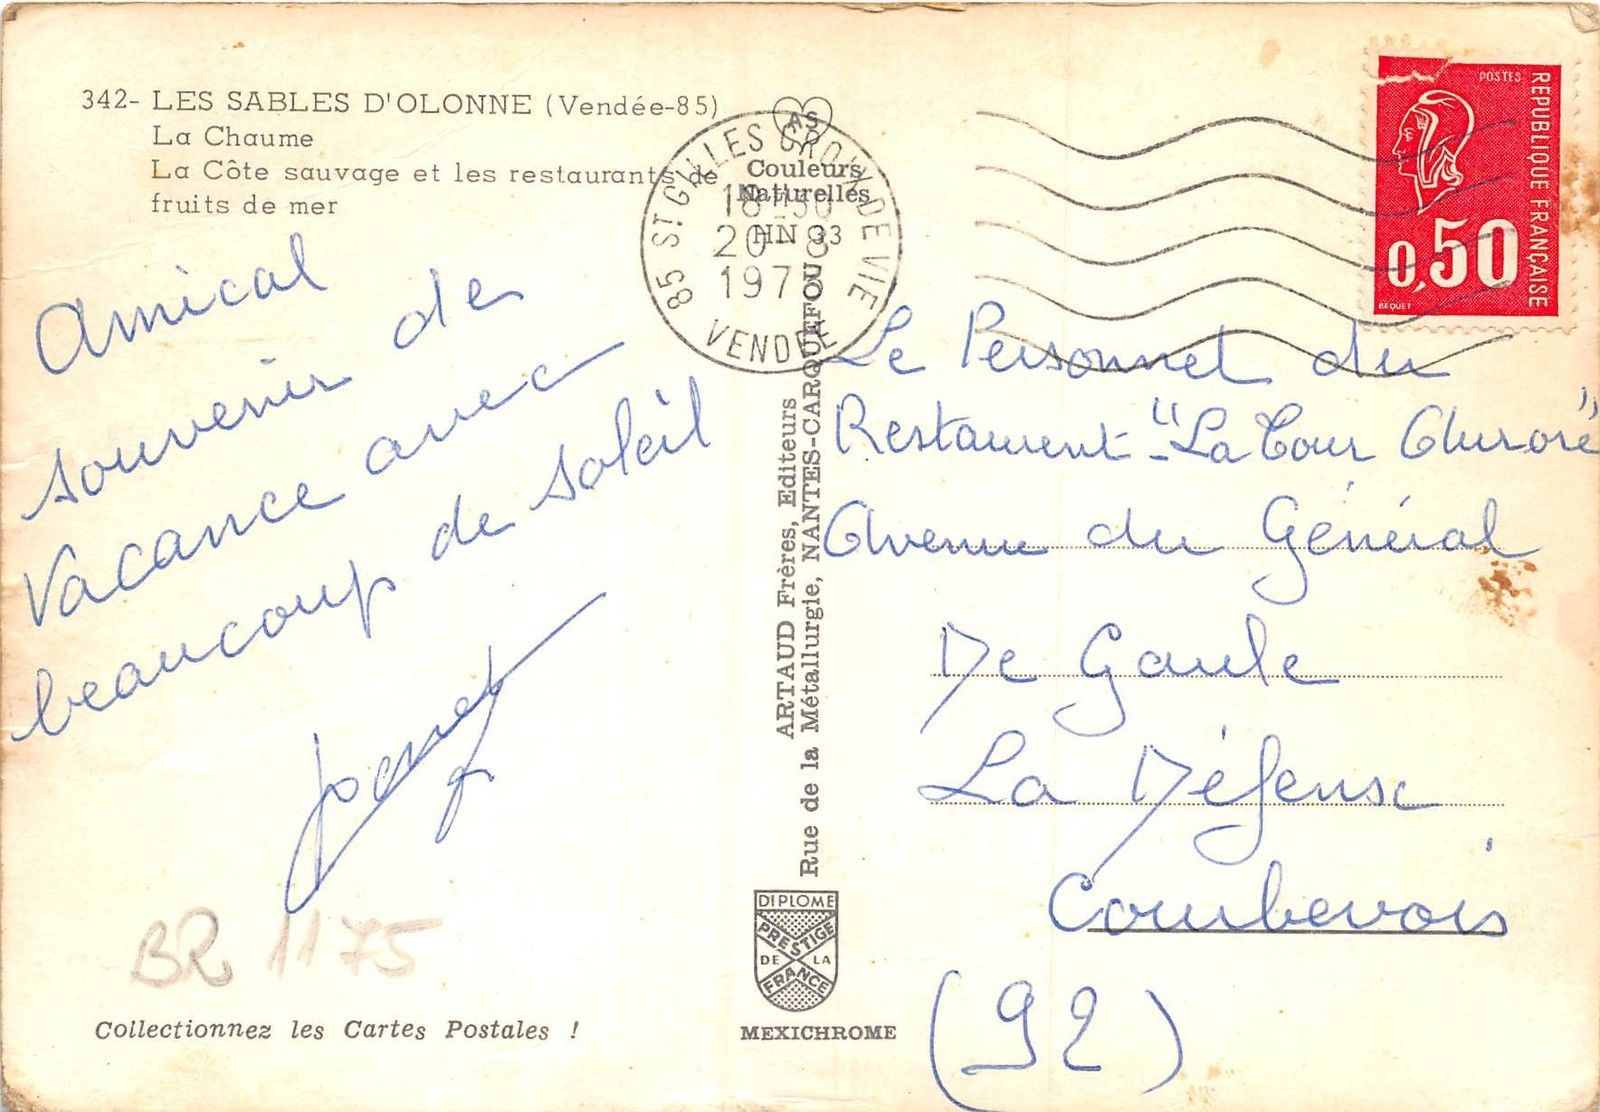 342- LES SABLES D'OLONNE (Vendée-85)
La Chaume
La Côte sauvage et les restaurants de
fruits de mer
Amical
souvenir de
Vacance avec
beaucoup de soleil
BR 1175
Collectionnez les Cartes Postales !
AS
Couleurs
Naturelles
HN 33
85 ST GILLES CROIX DE VIE
20-8
VENDEE
ARTAUD Frères, Editeurs
Rue de la Métallurgie, NANTES-CARQUEFOU
DIPLOME
PRESTIGE
DE LA
FRANCE
MEXICHROME
POSTES
REPUBLIQUE FRANÇAISE
0,50
BEQUET
Le Personnel du
Restaurent "La Tour Auroré"
Avenue du Général
De Gaule
La Défense
Courbevois
(92)